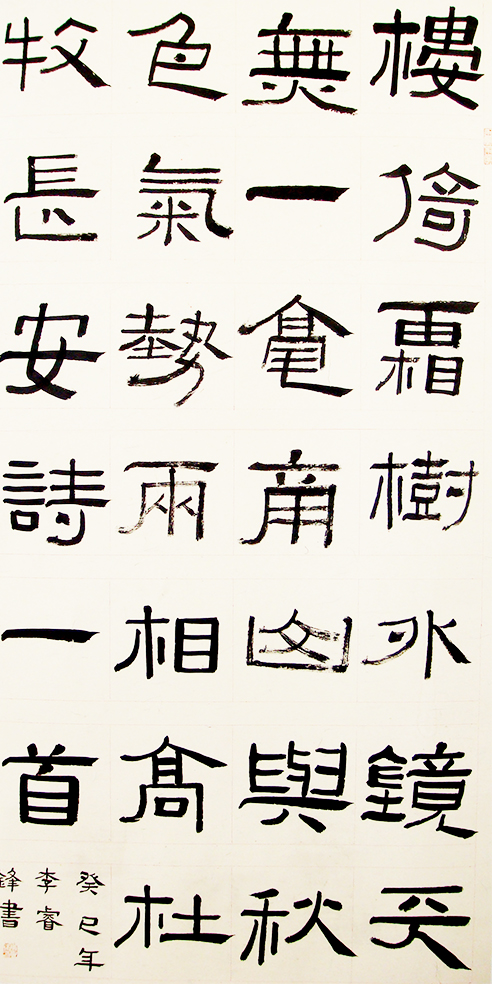 樓倚霜樹外鏡天
無一毫南山與秋
色氣勢兩相高杜
牧長安詩一首
癸巳年
李睿
鋒書